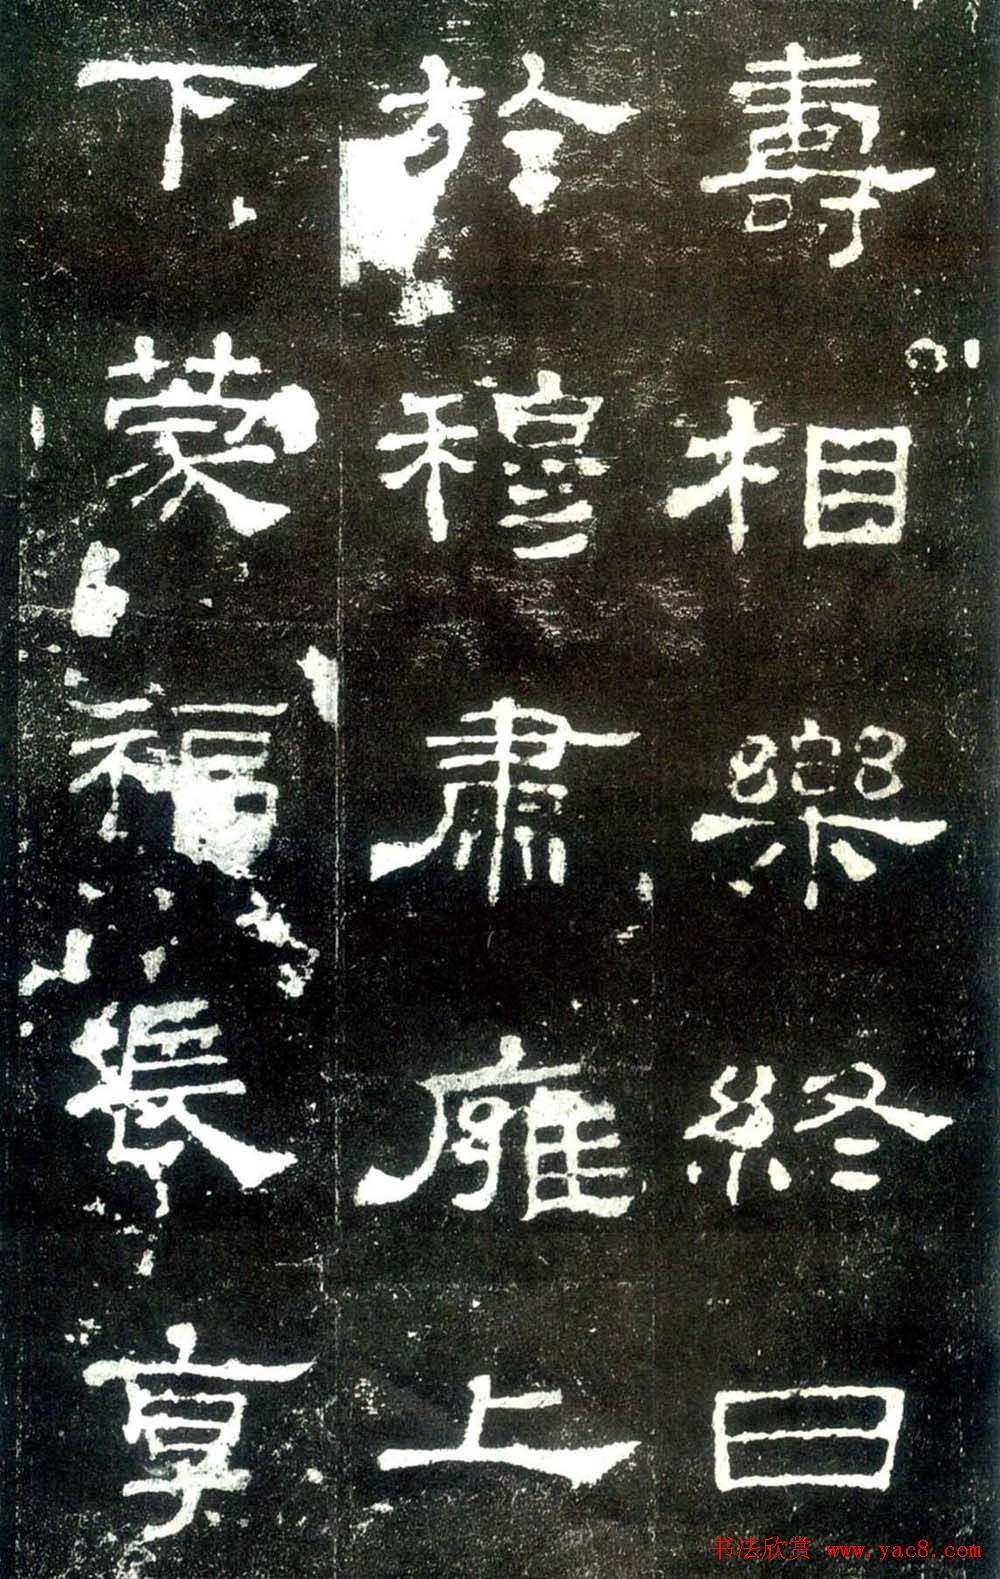 壽相樂終日
於穆肅廱上
下蒙福長享
书法欣赏 www.yac8.com